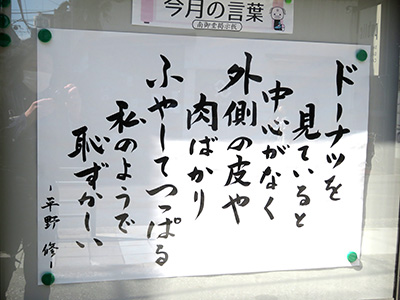 今月の言葉
南御堂掲示板
ドーナツを
見ていると
中心がなく
外側の皮や
肉ばかり
ふやしてつっぱる
私のようで
恥ずかしい
-平野 修-